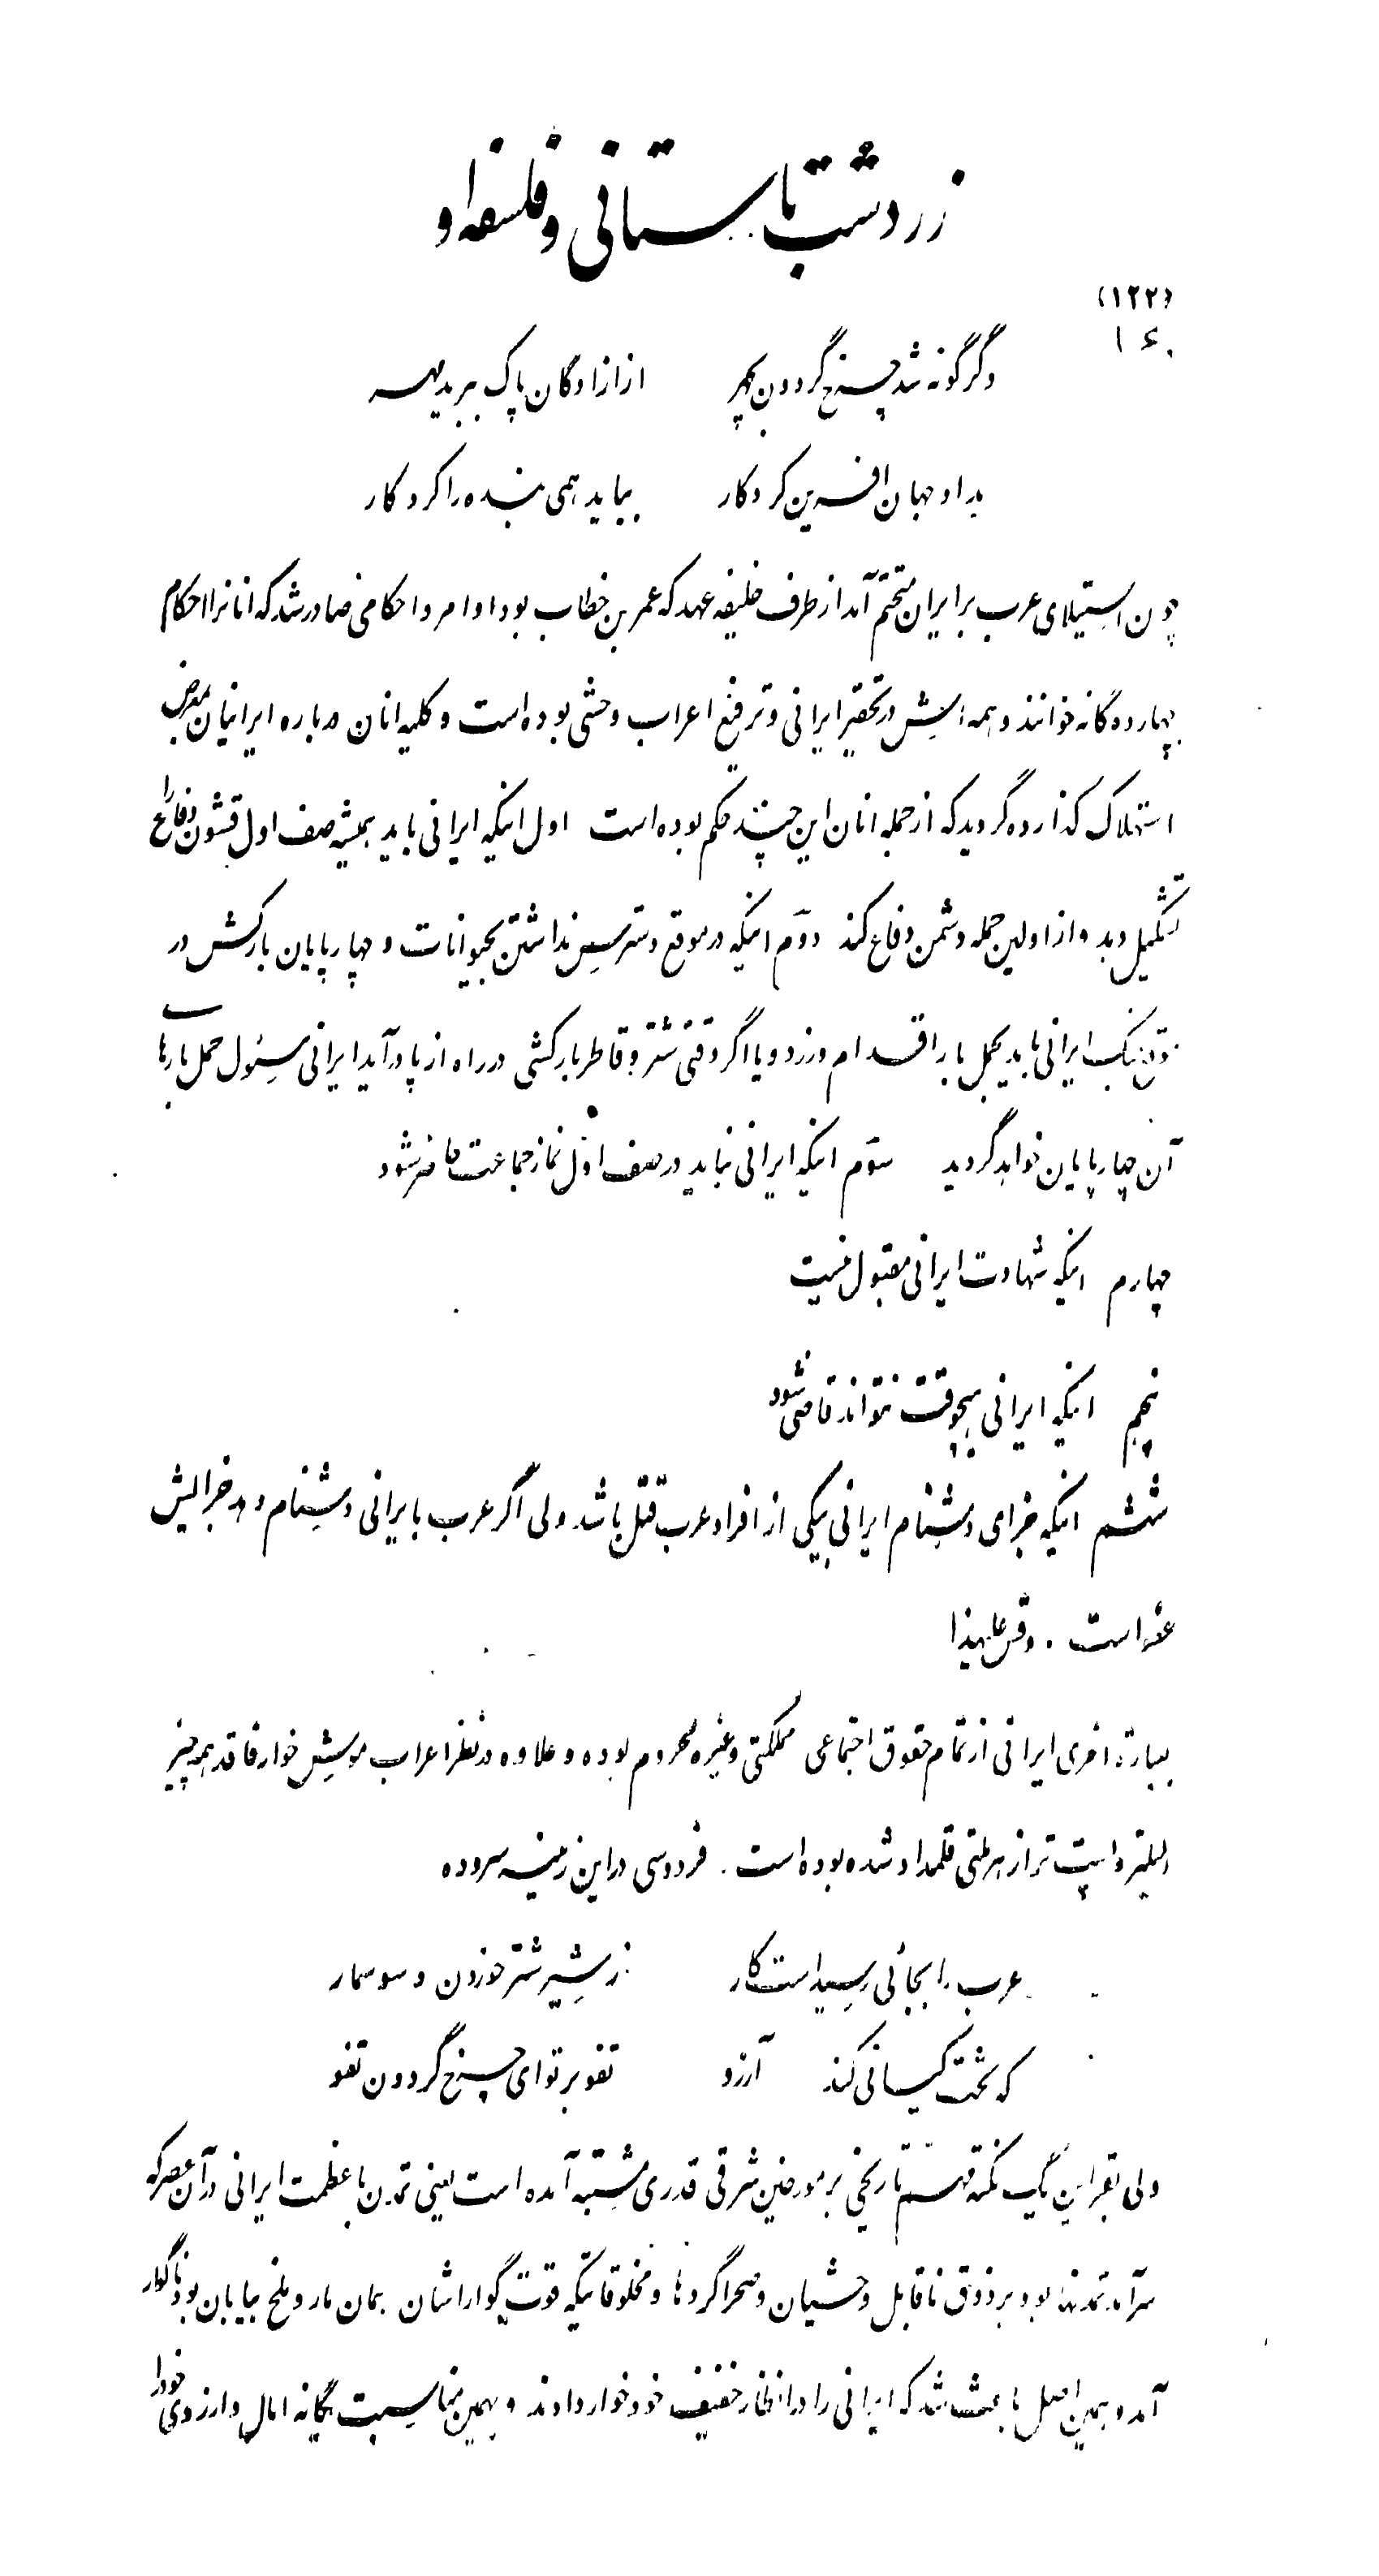 زردشت باستانی و فلسفه او
(۱۲۲)
۱۶۰
دگرگونه شد چرخ گردون بچهر از ازادگان پاک ببرید مهر
بداد جهان افرین کردگار بباید همی بنده را کرد کار
چون استیلای عرب بر ایران متحتم آمد از طرف خلیفه عهد که عمر بن خطاب بود اوامر و احکامی صادر شد که انانرا احکام
چهارده گانه خوانند و همه اش در تحقیر ایرانی و ترفیع اعراب وحشی بوده است و کلیه انان درباره ایرانیان بمعرض
استهلاک گذارده گردید که از جمله انان این چند حکم بوده است اول اینکه ایرانی باید همیشه صف اول قشون دفاع را
تشکیل دهد و از اولین حمله دشمن دفاع کند دوّم اینکه در موقع دسترس نداشتن بحیوانات و چهارپایان بارکش در
موقع جنگ ایرانی باید بحمل بار اقدام ورزد و یا اگر وقتی شتر و قاطر بارکشی در راه از پا درآید ایرانی مسئول حمل بارهای
آن چهارپایان خواهد گردید سوّم اینکه ایرانی نباید در صف اوّل نماز جماعت حاضر شود
چهارم اینکه شهادت ایرانی مقبول نیست
پنجم اینکه ایرانی هیچوقت نتواند قاضی شود
ششم اینکه جزای دشنام ایرانی بیکی از افراد عرب قتل باشد ولی اگر عرب بایرانی دشنام دهد جزایش
عفو است . وقس علیهذا
بعبارة اخری ایرانی از تمام حقوق اجتماعی مملکتی و غیره محروم بوده و علاوه در نظر اعراب موسش خوار فاقد همه چیز
و پست تر از هر ملتی قلمداد شده بوده است . فردوسی در این زمینه سروده
عرب را بجائی رسید است کار ز شیر شتر خوردن و سوسمار
که تخت کیانی کند آرزو تفو بر تو ای چرخ گردون تفو
ولی بغیر این یک نکته مهم تاریخی بر مورخین شرقی قدری مشتبه آمده است یعنی تمدن با عظمت ایرانی در آن عصر که
سرآمد تمدنها بود بر ذوق ناقابل وحشیان و صحراگردها و مخلوقاتیکه قوت گواراشان همان مار و ملخ بیابان بود ناگوار
آمد و همین اصل باعث شد که ایرانی را در انظار خفیف خود خوار دادند و بهمین مناسبت یگانه امال و ارزوی خود را